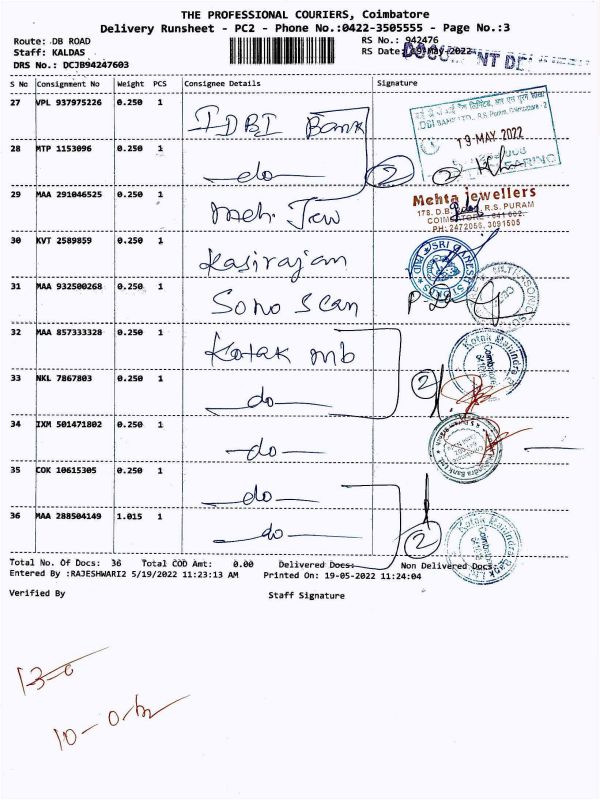 THE PROFESSIONAL COURIERS, Coimbatore
Delivery Runsheet - PC2 - Phone No.:0422-3505555 - Page No.:3
Route: DB ROAD RS No.: 942476
Staff: KALDAS RS Date: 19-May-2022
DRS No.: DCJB94247603
S No Consignment No Weight PCS Consignee Details Signature
27 VPL 937975226 0.250 1 IDBI Bank
19 MAY 2022
28 MTP 1153096 0.250 1 do 2 2
29 MAA 291046525 0.250 1 meh. Jew
Mehta jewellers
178. D.B. R.S. PURAM
COIMBATORE - 641 002.
PH: 2472056, 3091505
30 KVT 2589859 0.250 1 Kasirajan
SRI GANESH
31 MAA 932500268 0.250 1 Sono Scan
32 MAA 857333328 0.250 1 Kotak mb
Kotak Mahindra
Coimbatore
33 NKL 7867803 0.250 1 do 2
34 IXM 501471802 0.250 1 do
35 COK 10615305 0.250 1 do
36 MAA 288504149 1.015 1 do 2
Kotak Mahindra Bank Ltd
Coimbatore
Total No. Of Docs: 36 Total COD Amt: 0.00 Delivered Docs: Non Delivered Docs:
Entered By :RAJESHWARI2 5/19/2022 11:23:13 AM Printed On: 19-05-2022 11:24:04
Verified By Staff Signature